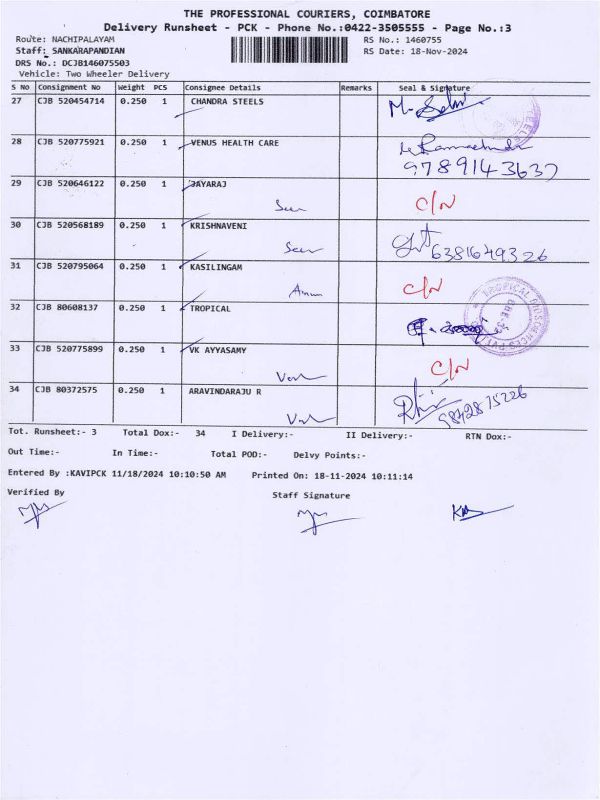 THE PROFESSIONAL COURIERS, COIMBATORE
Delivery Runsheet - PCK - Phone No.:0422-3505555 - Page No.:3
Route: NACHIPALAYAM RS No.: 1460755
Staff: SANKARAPANDIAN RS Date: 18-Nov-2024
DRS No.: DCJB146075503
Vehicle: Two Wheeler Delivery
S No Consignment No Weight PCS Consignee Details Remarks Seal & Signature
27 CJB 520454714 0.250 1 CHANDRA STEELS
28 CJB 520775921 0.250 1 VENUS HEALTH CARE
9789143637
29 CJB 520646122 0.250 1 JAYARAJ
C/N
30 CJB 520568189 0.250 1 KRISHNAVENI
6381649326
31 CJB 520795064 0.250 1 KASILINGAM
C/N
32 CJB 80608137 0.250 1 TROPICAL
TROPICAL BIOSCIENCES
33 CJB 520775899 0.250 1 VK AYYASAMY
C/N
34 CJB 80372575 0.250 1 ARAVINDARAJU R
9842875226
Tot. Runsheet:- 3 Total Dox:- 34 I Delivery:- II Delivery:- RTN Dox:-
Out Time:- In Time:- Total POD:- Delvy Points:-
Entered By :KAVIPCK 11/18/2024 10:10:50 AM Printed On: 18-11-2024 10:11:14
Verified By Staff Signature